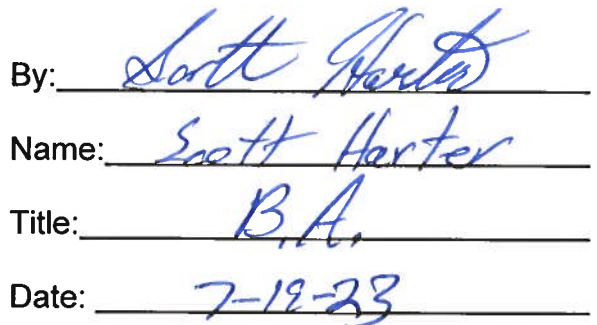 By: Scott Harter
Name: Scott Harter
Title: B.A.
Date: 7-19-23